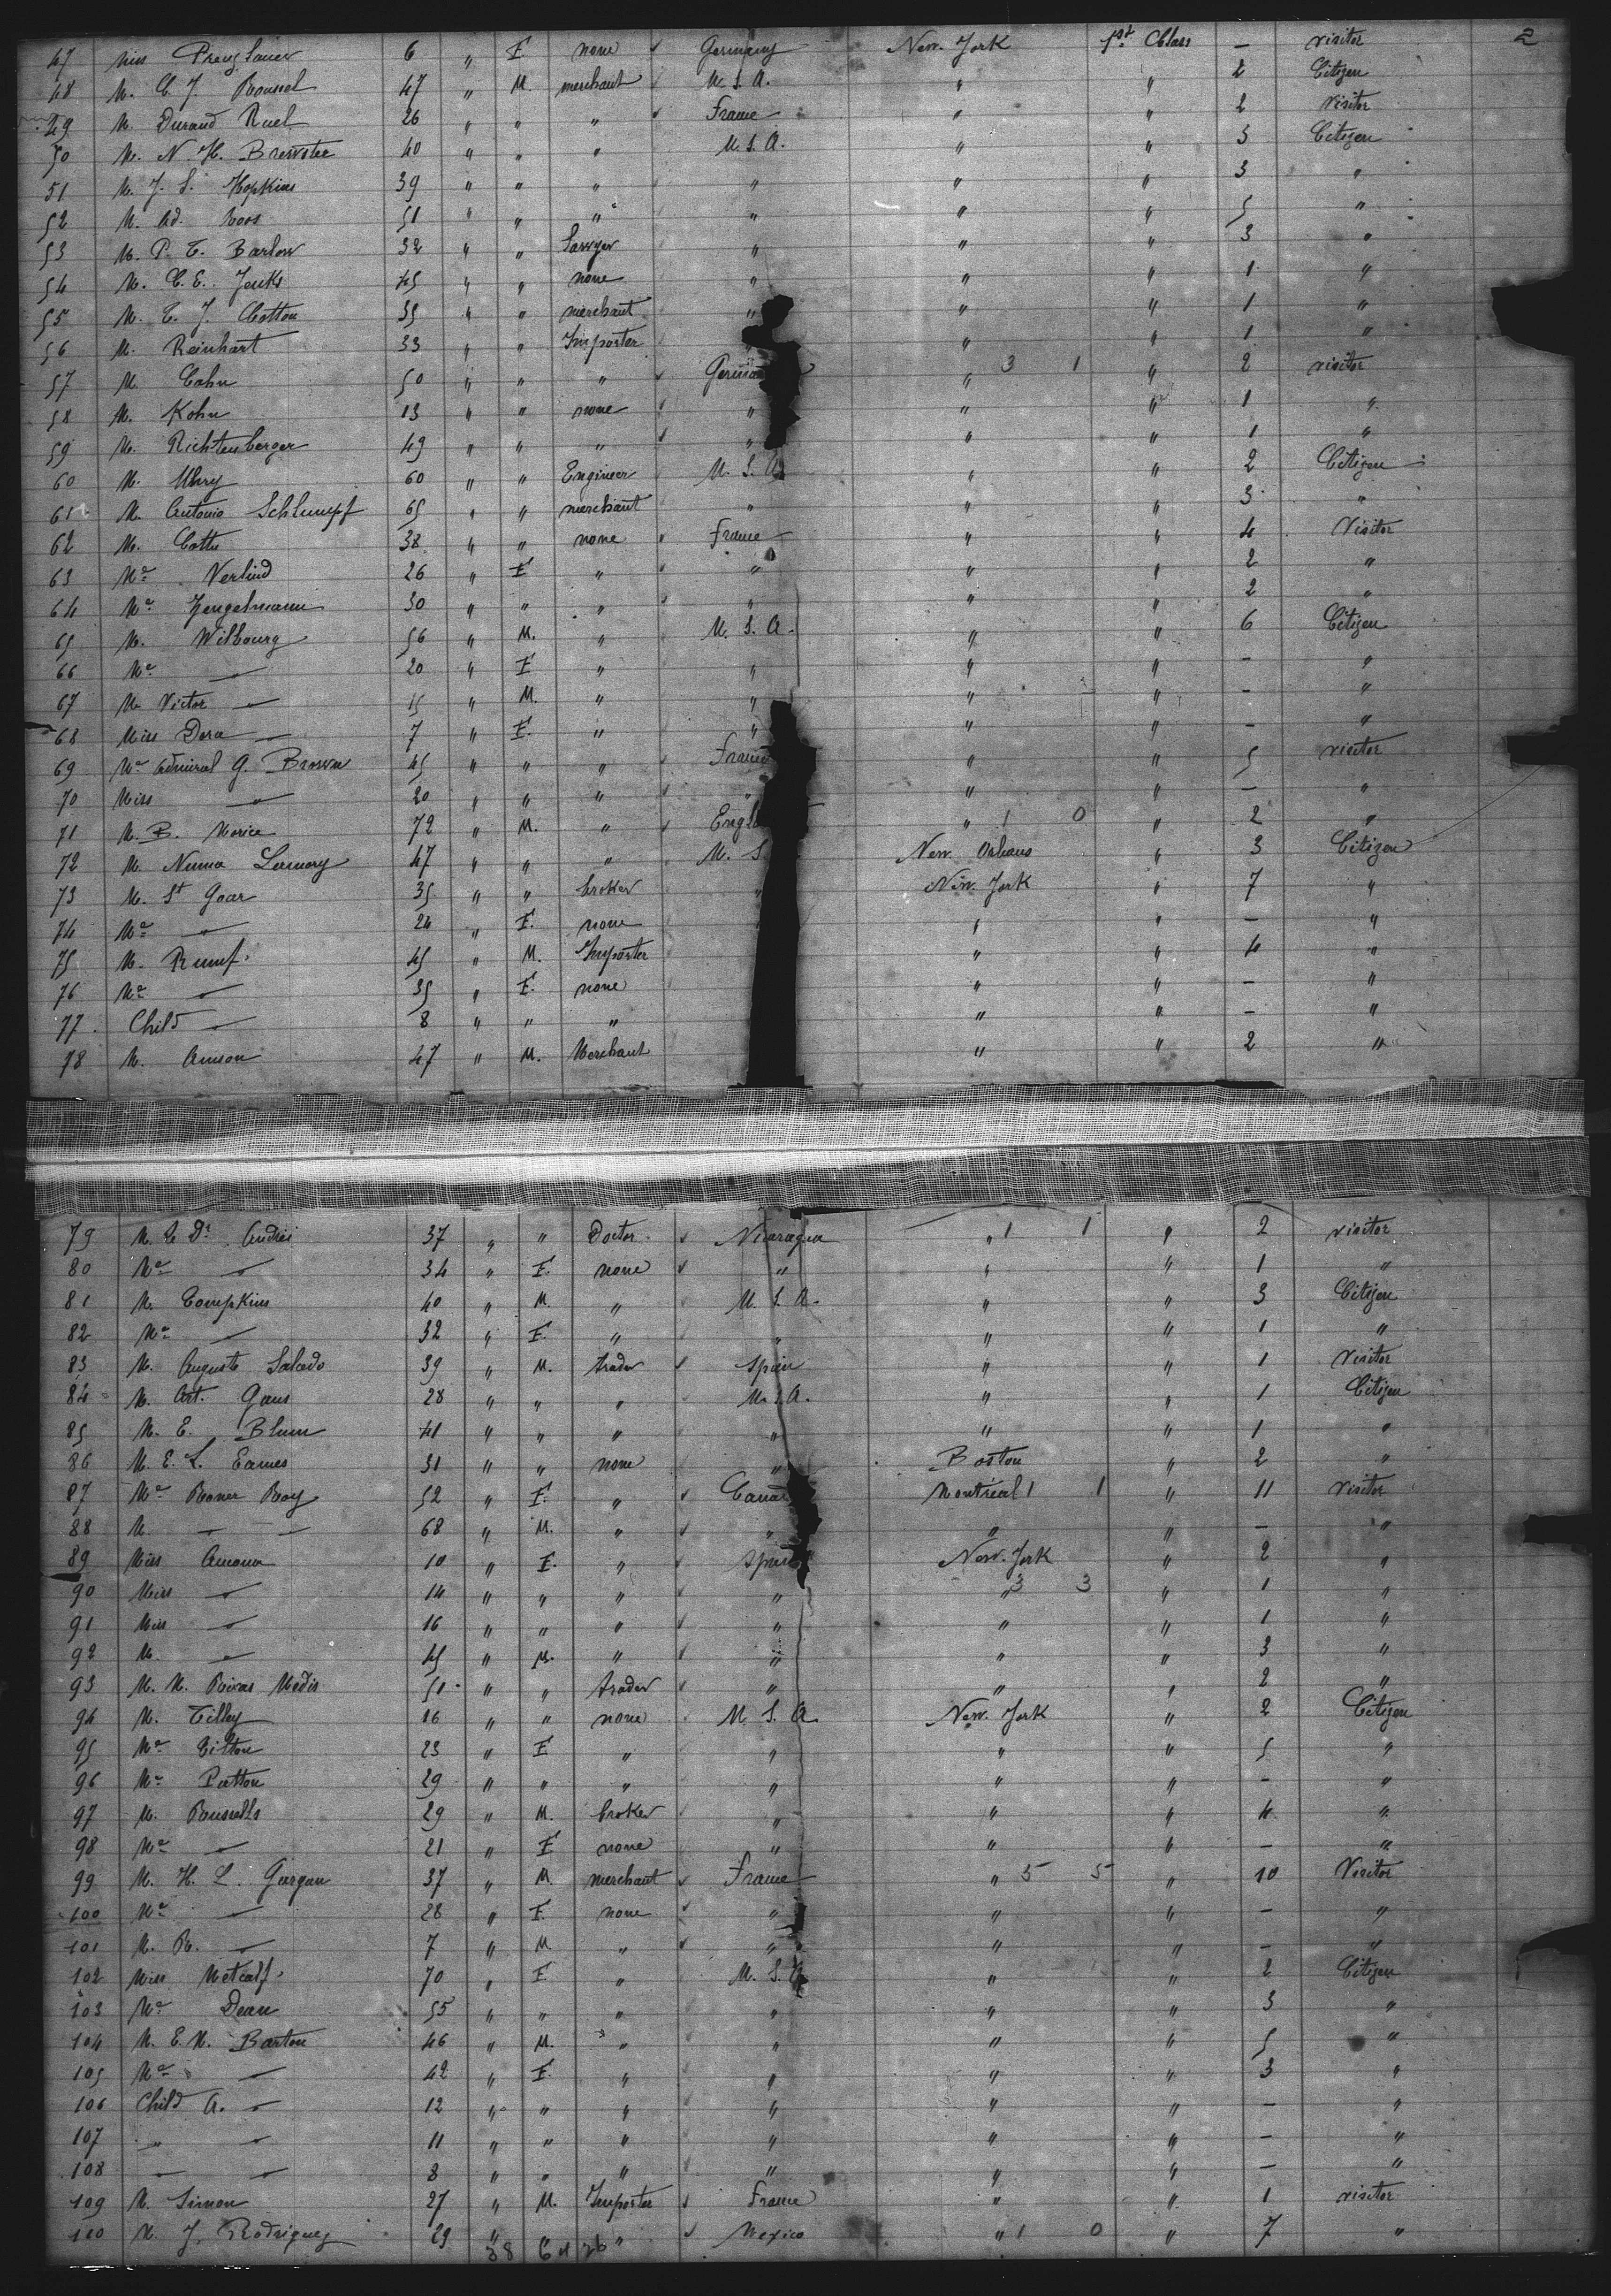 2
47 Miss Preuzlauer 6 " F none ✓ Germany New. York 1st Class - visitor
48 M. C. J. Roussel 47 " M. merchant ✓ U. S. A. " " 2 Citizen
49 M. Durand Ruel 26 " " " ✓ France " " 2 Visitor
50 M. N. H. Brewster 40 " " " U. S. A. " " 3 Citizen
51 M. J. S. Hopkins 39 " " " " " " 3 "
52 M. Ad. Roos 51 " " " " " " 5 "
53 M. P. T. Barlow 32 " " Lawyer " " " 3 "
54 M. C. E. Jenks 45 " " none " " " 1 "
55 M. T. J. Cotton 35 " " merchant " " " 1 "
56 M. Reinhart 33 " " Importer " " 1 "
57 M. Cahn 50 " " " ✓ German " 3 1 " 2 visitor
58 M. Kohn 13 " " none ✓ " " " 1 "
59 M. Richtenberger 49 " " " ✓ " " " 1 "
60 M. Uhry 60 " " Engineer U. S. A. " " 2 Citizen
61 M. Antonio Schlumpf 65 " " merchant " " " 3 "
62 M. Cottu 38 " " none " France " " 4 Visitor
63 Me Verlind 26 " F " ✓ " " " 2 "
64 Me Zengelmann 30 " " " ✓ " " " 2 "
65 M. Wilbourg 56 " M. " U. S. A. " " 6 Citizen
66 Me — 20 " F " " " " - "
67 M. Victor — 15 " M. " " " " - "
68 Miss Dora — 7 " F. " " " " - "
69 Me Admiral G. Brown 45 " " " ✓ France " " 5 visitor
70 Miss — 20 " " " ✓ " " " - "
71 M. B. Morice 72 " M. " ✓ Engla " 1 0 " 2 "
72 M. Numa Lamory 47 " " " U. S New Orleans " 3 Citizen
73 M. St Goar 35 " " broker " New. York " 7 "
74 Me — 24 " F. none " " - "
75 M. Rumf. 45 " M. Importer " " 4 "
76 Me — 35 " F. none " " - "
77 Child — 8 " " " " " - "
78 M. Amson 47 " M. Merchant " " 2 "
79 M. le Dr. 37 " " Doctor ✓ Nicaragua " 1 1 " 2 visitor
80 Me — 34 " F. none ✓ " " " 1 "
81 M. Tompkins 40 " M. " U. S. A. " " 3 Citizen
82 Me — 32 " F. " " " " 1 "
83 M. Auguste Salcedo 39 " M. trader ✓ Spain " " 1 Visitor
84 M. Art. Gans 28 " " " U. S. A. " " 1 Citizen
85 M. E. Blum 41 " " " " " " 1 "
86 M. E. L. Eames 31 " " none " Boston " 2 "
87 Me Roy 52 " F. " ✓ Canad Montréal 1 1 " 11 Visitor
88 M — — 68 " M. " ✓ " " " - "
89 Miss 10 " F. " ✓ Spain New. York " 2 "
90 Miss — 14 " " " ✓ " " 3 3 " 1 "
91 Miss — 16 " " " ✓ " " " 1 "
92 M. — 45 " M. " ✓ " " " 3 "
93 M. M. 51 " " trader ✓ " " " 2 "
94 M. Tilley 16 " " none U. S. A. New. York " 2 Citizen
95 Me Tilton 23 " F " " " " 5 "
96 Me Patton 29 " " " " " " - "
97 M. 29 " M. broker " " " 4 "
98 Me — 21 " F none " " " - "
99 M. H. L. Gurgan 37 " M. merchant ✓ France " 5 5 " 10 Visitor
100 Me — 28 " F. none ✓ " " " - "
101 M. R. — 7 " M. " ✓ " " " - "
102 Miss Metcalf. 70 " F. " U. S. A " " 2 Citizen
103 Me Dean 55 " " " " " " 3 "
104 M. E. M. Barton 46 " M. " " " " 5 "
105 Me — 42 " F. " " " " 3 "
106 Child A. — 12 " " " " " " - "
107 — — 11 " " " " " " - "
108 — — 8 " " " " " " - "
109 M. Simon 27 " M. Importer ✓ France " " 1 visitor
110 M. J. Rodriguez 29 " " " ✓ Mexico " 1 0 " 7 "
38 64 26